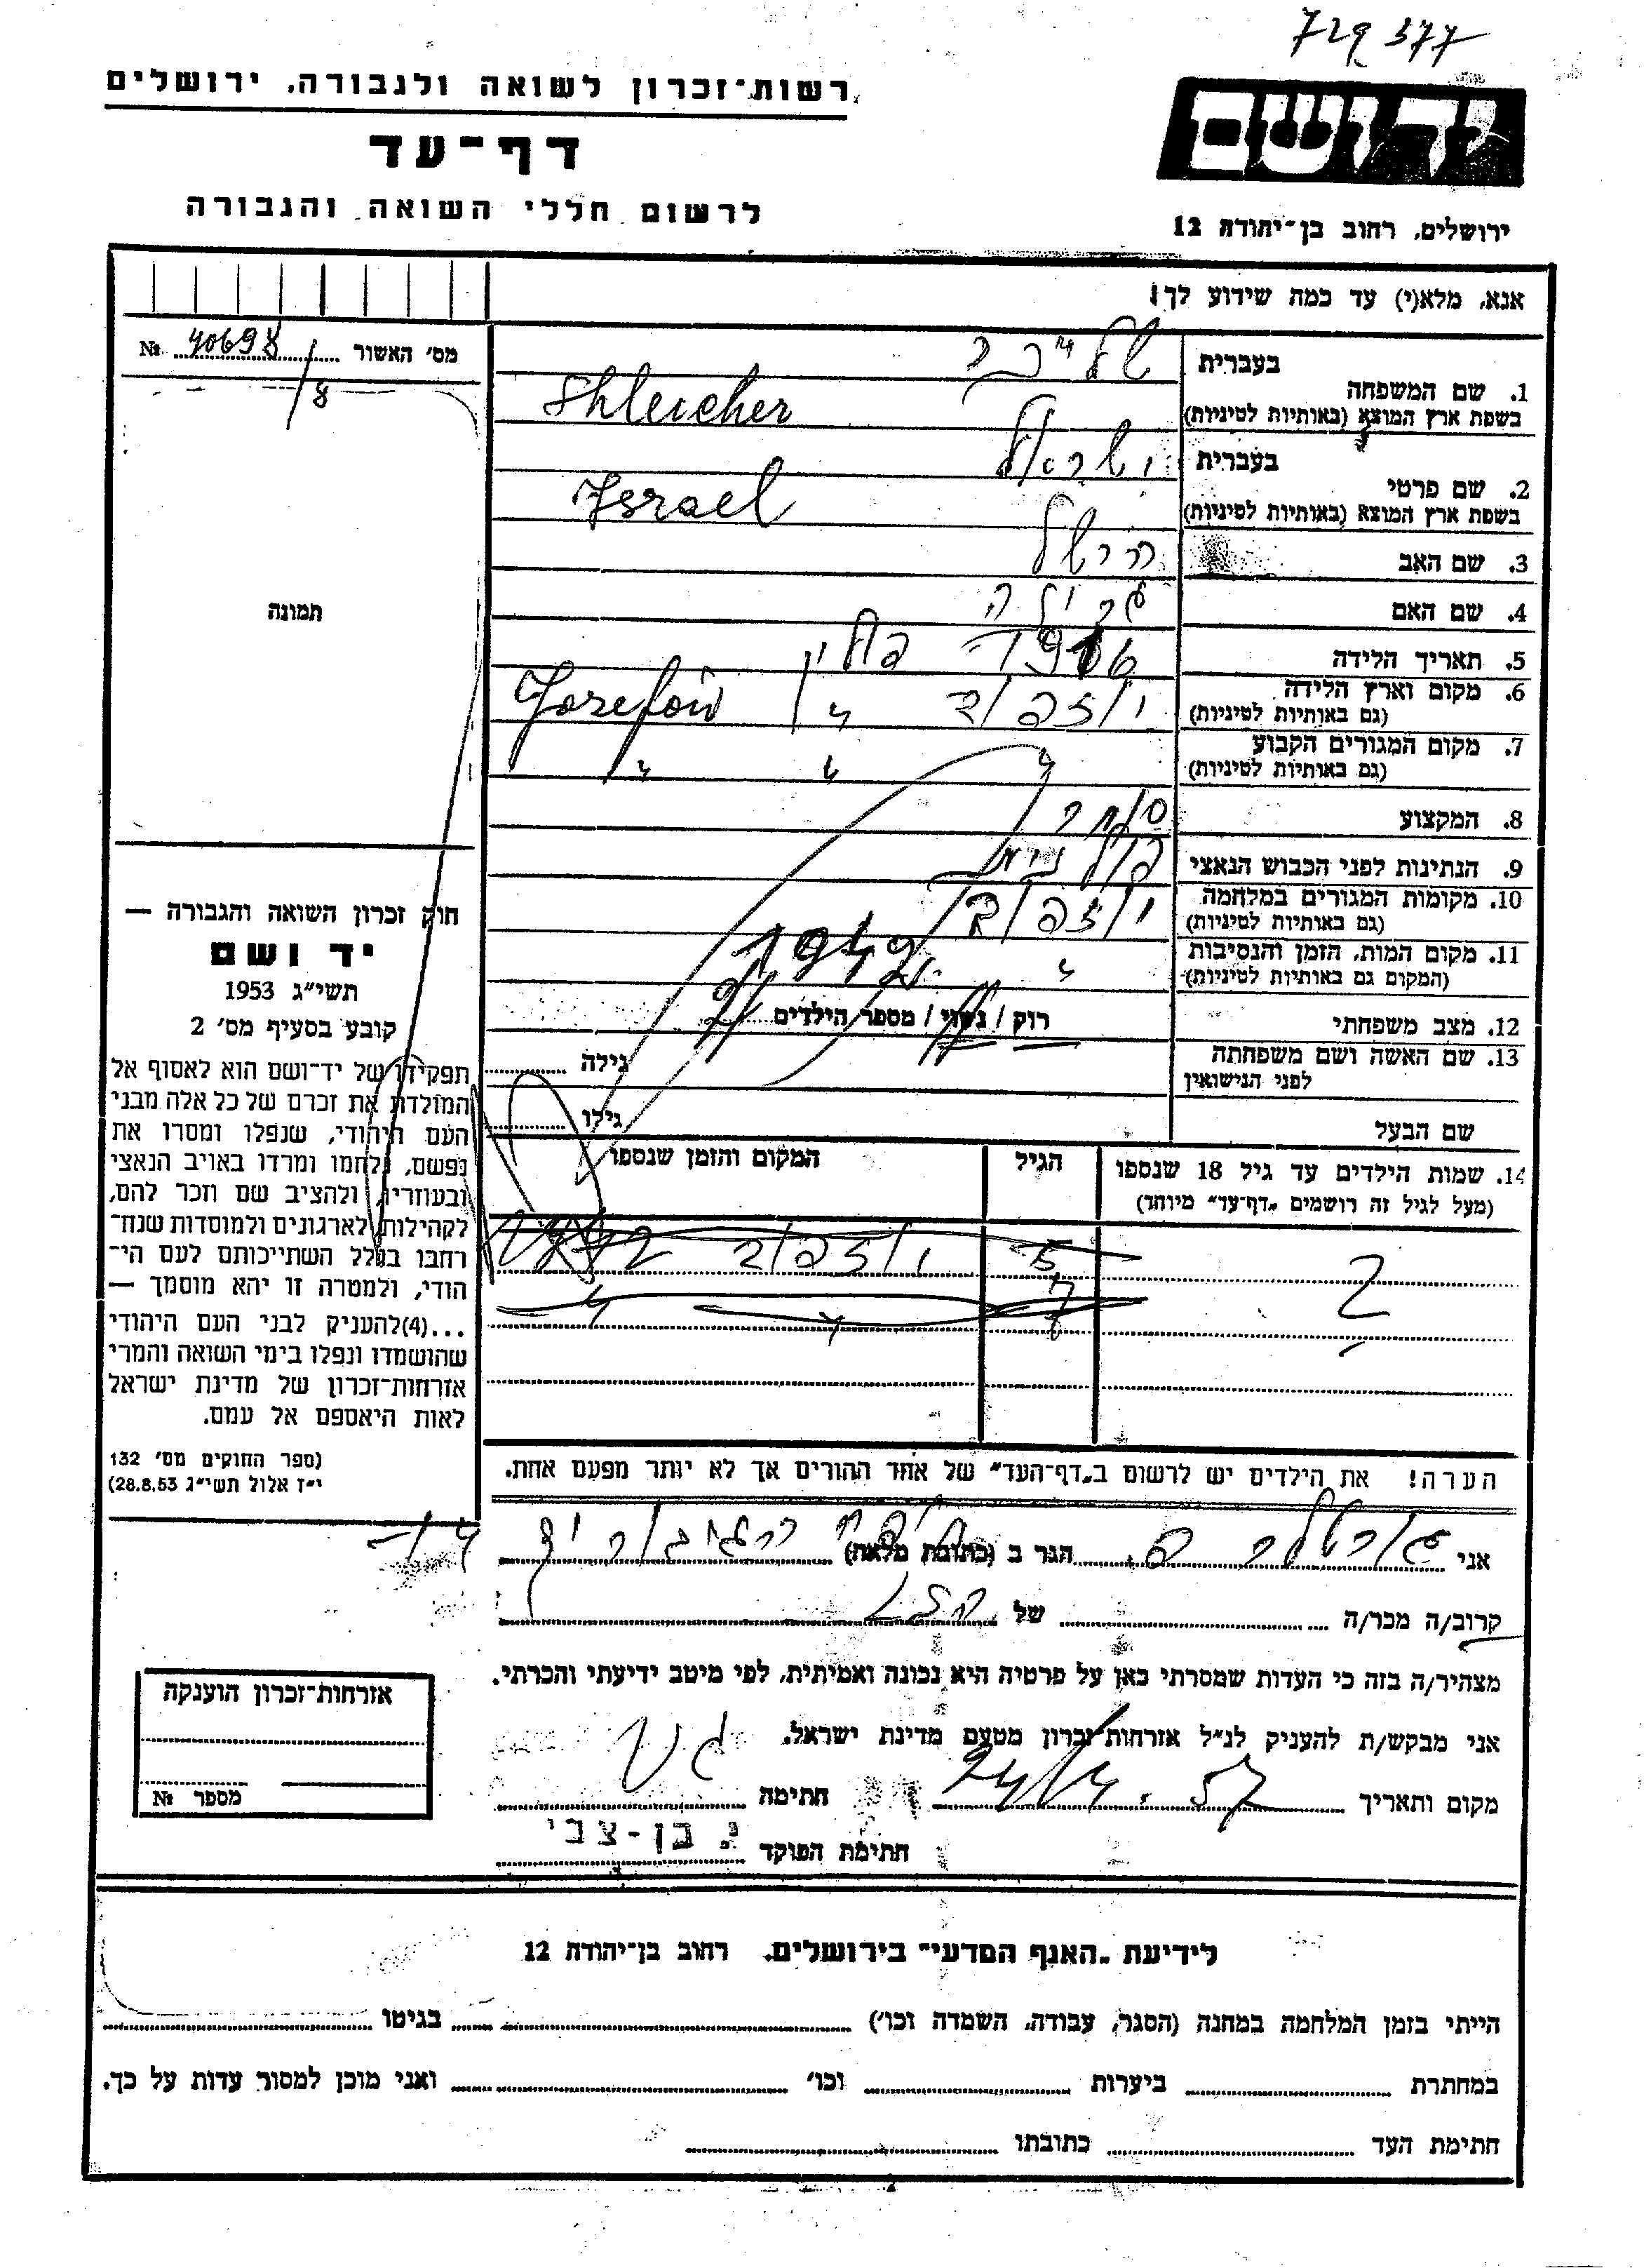 רשות־זכרון לשואה ולגבורה, ירושלים
דף־עד
לרשום חללי השואה והגבורה
יד ושם
ירושלים, רחוב בן־יהודה 12
אנא, מלא(י) עד כמה שידוע לך!
מס׳ האשור № 40698
1. שם המשפחה בעברית
בשפת ארץ המוצא (באותיות לטיניות) Shleicher
2. שם פרטי בעברית ישראל
בשפת ארץ המוצא (באותיות לטיניות) Israel
3. שם האב הרשל
4. שם האם
5. תאריך הלידה
6. מקום וארץ הלידה
(גם באותיות לטיניות) Jozefów
7. מקום המגורים הקבוע
(גם באותיות לטיניות)
8. המקצוע סוחר
9. הנתינות לפני הכבוש הנאצי פולנית
10. מקומות המגורים במלחמה
(גם באותיות לטיניות) יוזפוב
11. מקום המות, הזמן והנסיבות 1942
(המקום גם באותיות לטיניות)
12. מצב משפחתי רוק / נשוי / מספר הילדים 2
13. שם האשה ושם משפחתה
לפני הנישואין גילה
שם הבעל גילו
14. שמות הילדים עד גיל 18 שנספו הגיל המקום והזמן שנספו
(מעל לגיל זה רושמים „דף־עד״ מיוחד)
2 5 יוזפוב
7
הערה! את הילדים יש לרשום ב„דף־העד״ של אחד ההורים אך לא יותר מפעם אחת.
אני הגר ב (כתובת מלאה)
קרוב/ה מכר/ה של
מצהיר/ה בזה כי העדות שמסרתי כאן על פרטיה היא נכונה ואמיתית, לפי מיטב ידיעתי והכרתי.
אני מבקש/ת להעניק לנ״ל אזרחות־זכרון מטעם מדינת ישראל.
מקום ותאריך 24/4.57 חתימה
חתימת הפוקד י. בן-צבי
תמונה
חוק זכרון השואה והגבורה —
יד ושם
תשי״ג 1953
קובע בסעיף מס׳ 2
תפקידו של יד־ושם הוא לאסוף אל
המולדת את זכרם של כל אלה מבני
העם היהודי, שנפלו ומסרו את
נפשם, נלחמו ומרדו באויב הנאצי
ובעוזריו, ולהציב שם וזכר להם,
לקהילות, לארגונים ולמוסדות שנח־
רבו בגלל השתייכותם לעם הי־
הודי, ולמטרה זו יהא מוסמך —
...(4) להעניק לבני העם היהודי
שהושמדו ונפלו בימי השואה והמרי
אזרחות־זכרון של מדינת ישראל
לאות היאספם אל עמם.
(ספר החוקים מס׳ 132
י״ז אלול תשי״ג 28.8.53)
אזרחות־זכרון הוענקה
מספר №
לידיעת „האגף המדעי״ בירושלים, רחוב בן־יהודה 12
הייתי בזמן המלחמה במחנה (הסגר, עבודה, השמדה וכו׳) בגיטו
במחתרת ביערות וכו׳ ואני מוכן למסור עדות על כך.
חתימת העד כתובתו